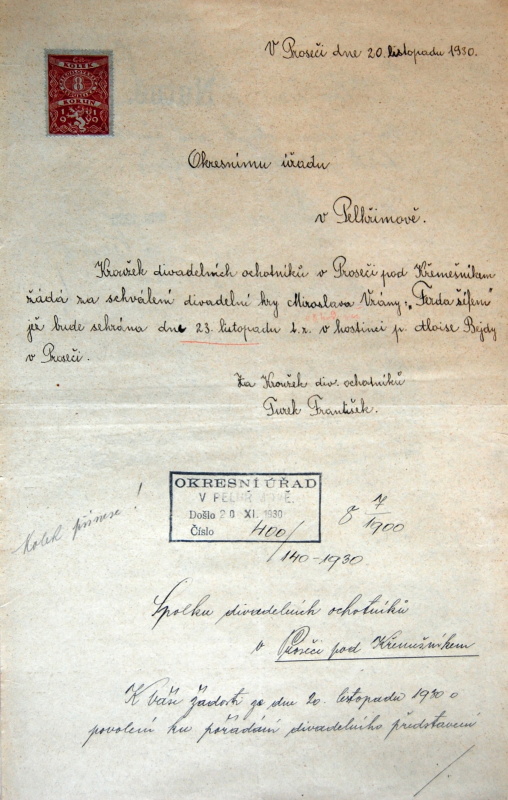 V Proseči dne 20. listopadu 1930.
KOLEK
8
KORUN
Okresnímu úřadu
v Pelhřimově.
Kroužek divadelních ochotníků v Proseči pod Křemešníkem
žádá za schválení divadelní hry Miroslava Vrány: „Ferda šífení"
jež bude sehrána dne 23. listopadu t.r. v hostinci p. Aloise Bejdy
v Proseči.
Za Kroužek div. ochotníků
Turek František.
OKRESNÍ ÚŘAD
V PELHŘIMOVĚ.
Došlo 20 XI. 1930
Číslo 400/
140-1930
8 7/1900
Kolek přinese!
Spolku divadelních ochotníků
v Proseči pod Křemešníkem
K Vaší žádosti ze dne 20. listopadu 1930 o
povolení ku pořádání divadelního představení